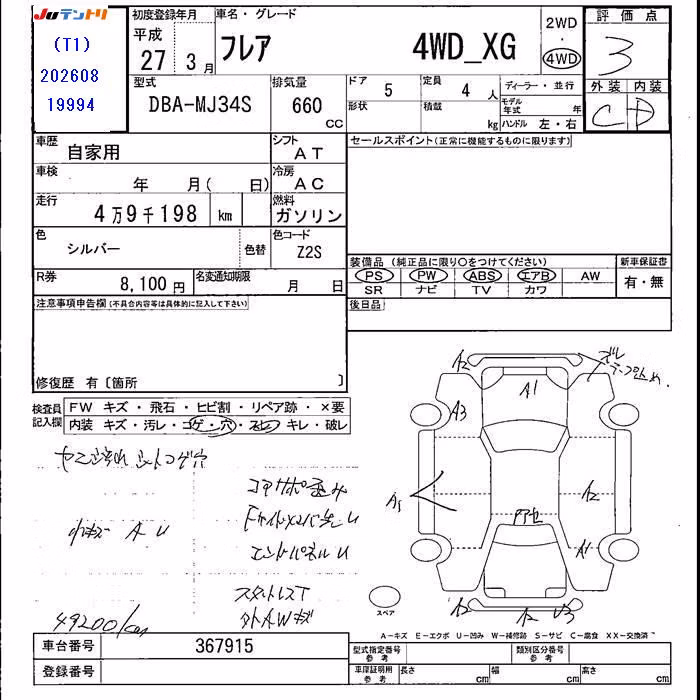 JUテントリ
(T1)
202608
19994
初度登録年月
平成
27 3月
車名・グレード
フレア 4WD_XG
2WD
・
4WD
評価点
3
外装 内装
C D
型式
DBA-MJ34S
排気量
660
CC
ドア
5
定員
4 人
形状
積載
kg
ディーラー・並行
モデル年式
年
ハンドル 左・右
車歴
自家用
シフト
AT
セールスポイント(正常に機能するものに限ります)
車検
年 月( 日)
冷房
AC
走行
4万9千198 km
燃料
ガソリン
色
シルバー
色替
色コード
Z2S
装備品 (純正品に限り○をつけてください)
新車保証書
PS PW ABS エアB AW
SR ナビ TV カワ
有・無
R券
8,100 円
名変通知期限
月 日
後日品
注意事項申告欄(不具合内容等は具体的に記入して下さい)
修復歴 有〔箇所 〕
検査員記入欄
FW キズ・飛石・ヒビ割・リペア跡・×要
内装 キズ・汚レ・コゲ・穴・スレ・キレ・破レ
小キズ A U
コアサポ歪み
エンドパネルU
スタットレスT
外AWキズ
49200km
A2
A1
ズレ
A3
A2
A1
A2
A2
U3
スペア
A-キズ E-エクボ U-凹み W-補修跡 S-サビ C-腐食 XX-交換済
車台番号
367915
登録番号
型式指定番号
参考
類別区分番号
参考
車庫証明用
参考
長さ cm
幅 cm
高さ cm